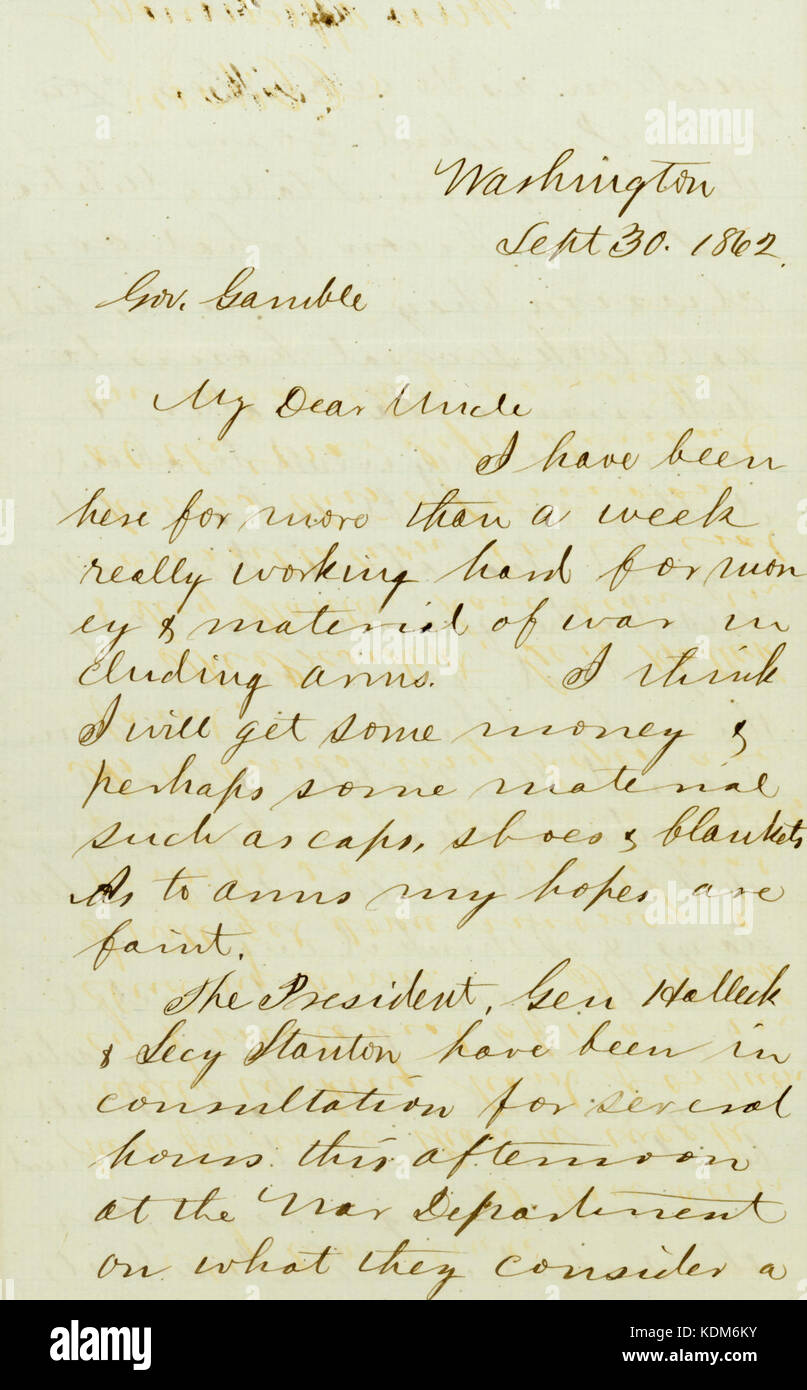 Washington
Sept 30. 1862.
Gov. Gamble
My Dear Uncle
I have been
here for more than a week
really working hard for mon
ey & material of war in
cluding arms. I think
I will get some money &
perhaps some material
such as caps, shoes & blankets
As to arms my hopes are
faint.
The President, Gen Halleck
& Secy Stanton have been in
consultation for several
hours this afternoon
at the War Department
on what they consider a
alamy
Image ID: KDM6KY
www.alamy.com